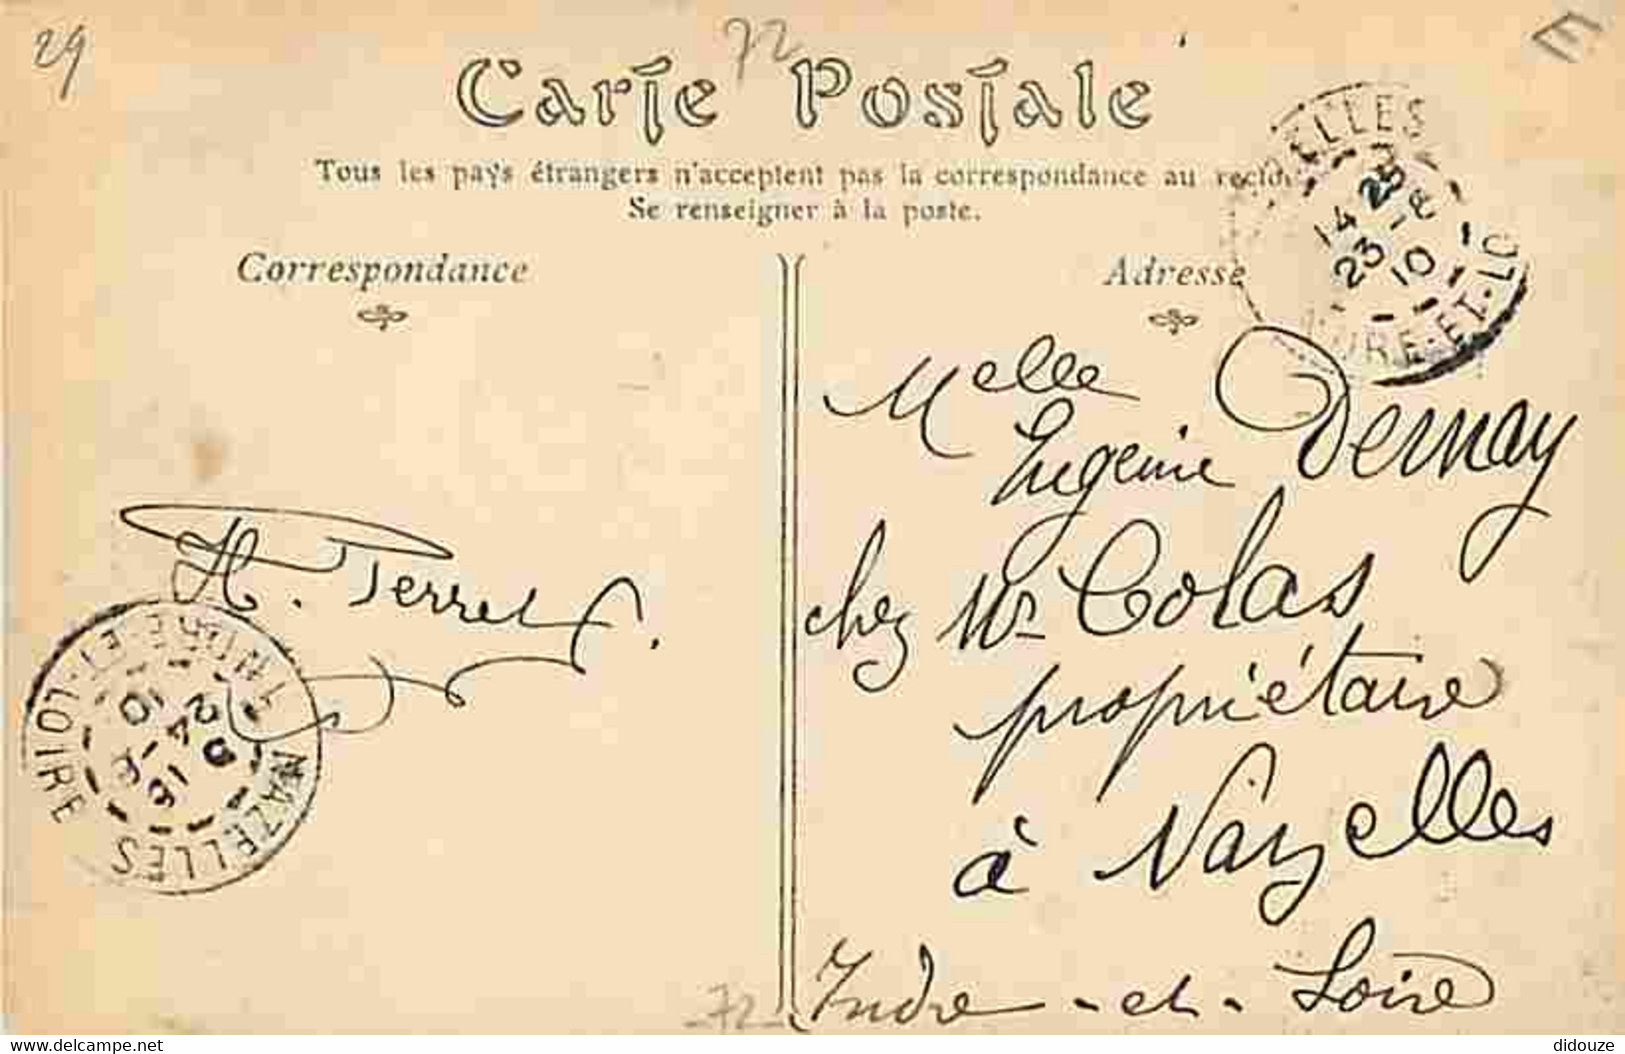 29
72
E
Carte Postale
Tous les pays étrangers n'acceptent pas la correspondance au recto
Se renseigner à la poste.
Correspondance
Adresse
ELLES
25
14
23 -8
10
INDRE-ET-LO
Melle
Eugenie Dernay
chez Mr Colas
propriétaire
à Nazelles
Indre-et-Loire
H. Terret
NAZELLES
INDRE-ET-LOIRE
24 -8
10
72
delcampe.net
didouze